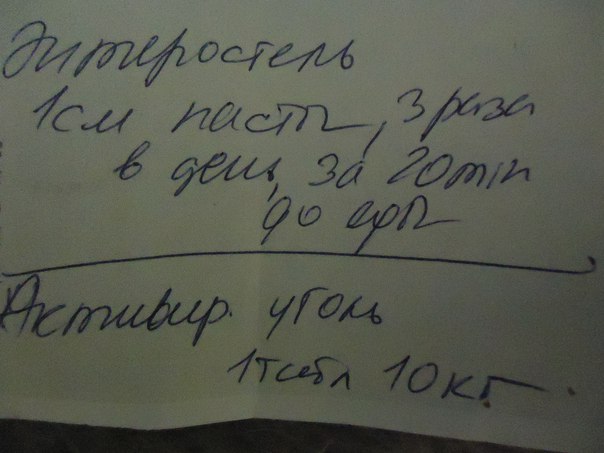 Энтеростель
1см пасты, 3 раза
в день, за 20min
до еды
Активир. уголь
1табл 10кг.